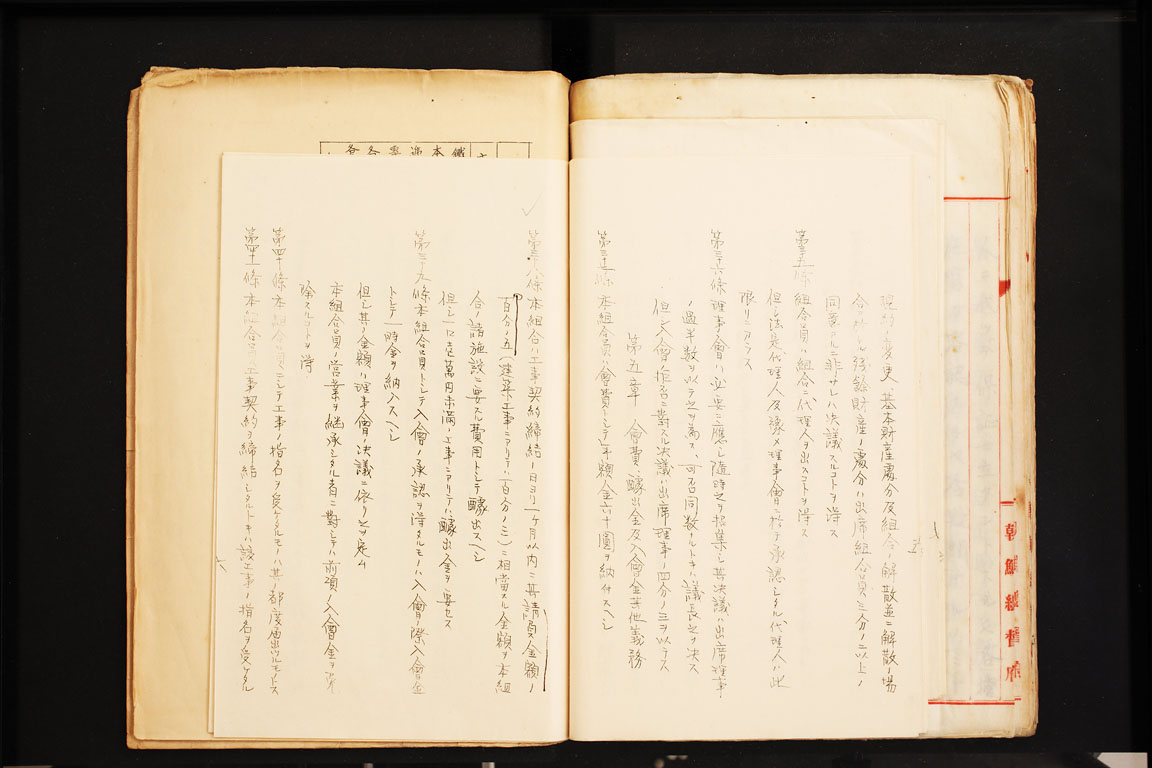 規約ノ変更、基本財産處分及組合ノ解散並ニ解散ノ場
合ニ於ケル残餘財産ノ處分ハ出席組合員三分ノ二以上ノ
同意アルニ非サレハ決議スルコトヲ得ス
第三十五條 組合員ハ組合ニ代理人ヲ出スコトヲ得ス
但シ法定代理人及豫メ理事會ニ於テ承認シタル代理人ハ此
限リニアラス
第三十六條 理事會ハ必要ニ應シ隨時之ヲ招集シ其決議ハ出席理事
ノ過半数ヲ以テ之ヲ為ス、可否同数ナルトキハ議長之ヲ決ス
但シ入會ノ拒否ニ對スル決議ハ出席理事ノ四分ノ三ヲ以テス
第五章 會費、醵出金及入會金其他義務
第三十七條 本組合員ハ會費トシテ年額金六十圓ヲ納付スヘシ
第三十八條 本組合ハ工事契約締結ノ日ヨリ一ヶ月以内ニ其請負金額ノ
百分ノ五(建築工事ニアリテハ百分ノ三)ニ相當スル金額ヲ本組
合ノ諸施設ニ要スル費用トシテ醵出スヘシ
但シ一口壱萬円未満ノ工事ニアリテハ醵出金ヲ要セス
第三十九條 本組合員トシテ入會ノ承認ヲ得タルモノハ入會ノ際入會金
トシテ一時金ヲ納入スヘシ
但シ其ノ金額ハ理事會ノ決議ニ依リ之ヲ定ム
本組合員ノ営業ヲ継承シタル者ニ對シテハ前項ノ入會金ヲ免
除スルコトヲ得
第四十條 本組合員ニシテ工事ノ指名ヲ受ケタルモノハ其ノ都度届出ツルモノトス
第四十一條 本組合員工事契約ヲ締結シタルトキハ該工事ノ指名ヲ受ケタル
六
朝鮮總督府